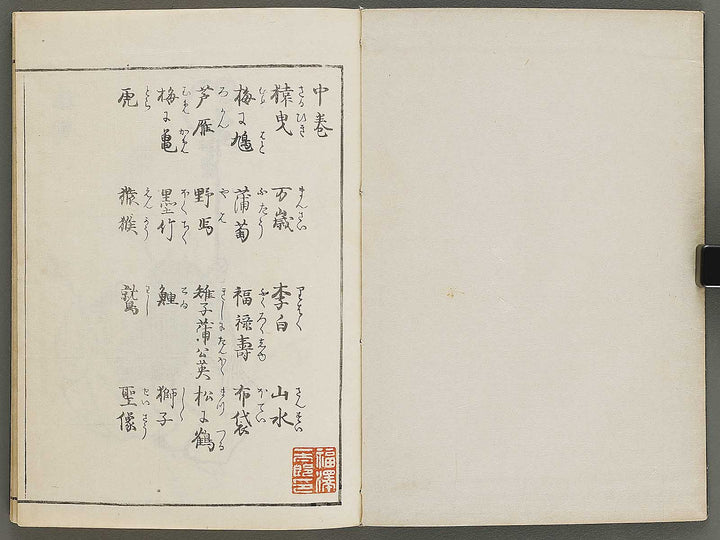 中巻
猿曳 万歳 李白 山水
さるひき まんざい りはく さんすい
梅に鳩 蒲萄 福禄壽 布袋
むめ はと ぶだう ふくろくじゆ ほてい
芦雁 野馬 雉子蒲公英 松に鶴
ろがん やば きじにたんぽゝ まつ つる
梅に亀 墨竹 鯉 獅子
むめ かめ ぼくちく こひ しし
虎 猿猴 鷲 聖像
とら えんこう わし せいざう
福澤